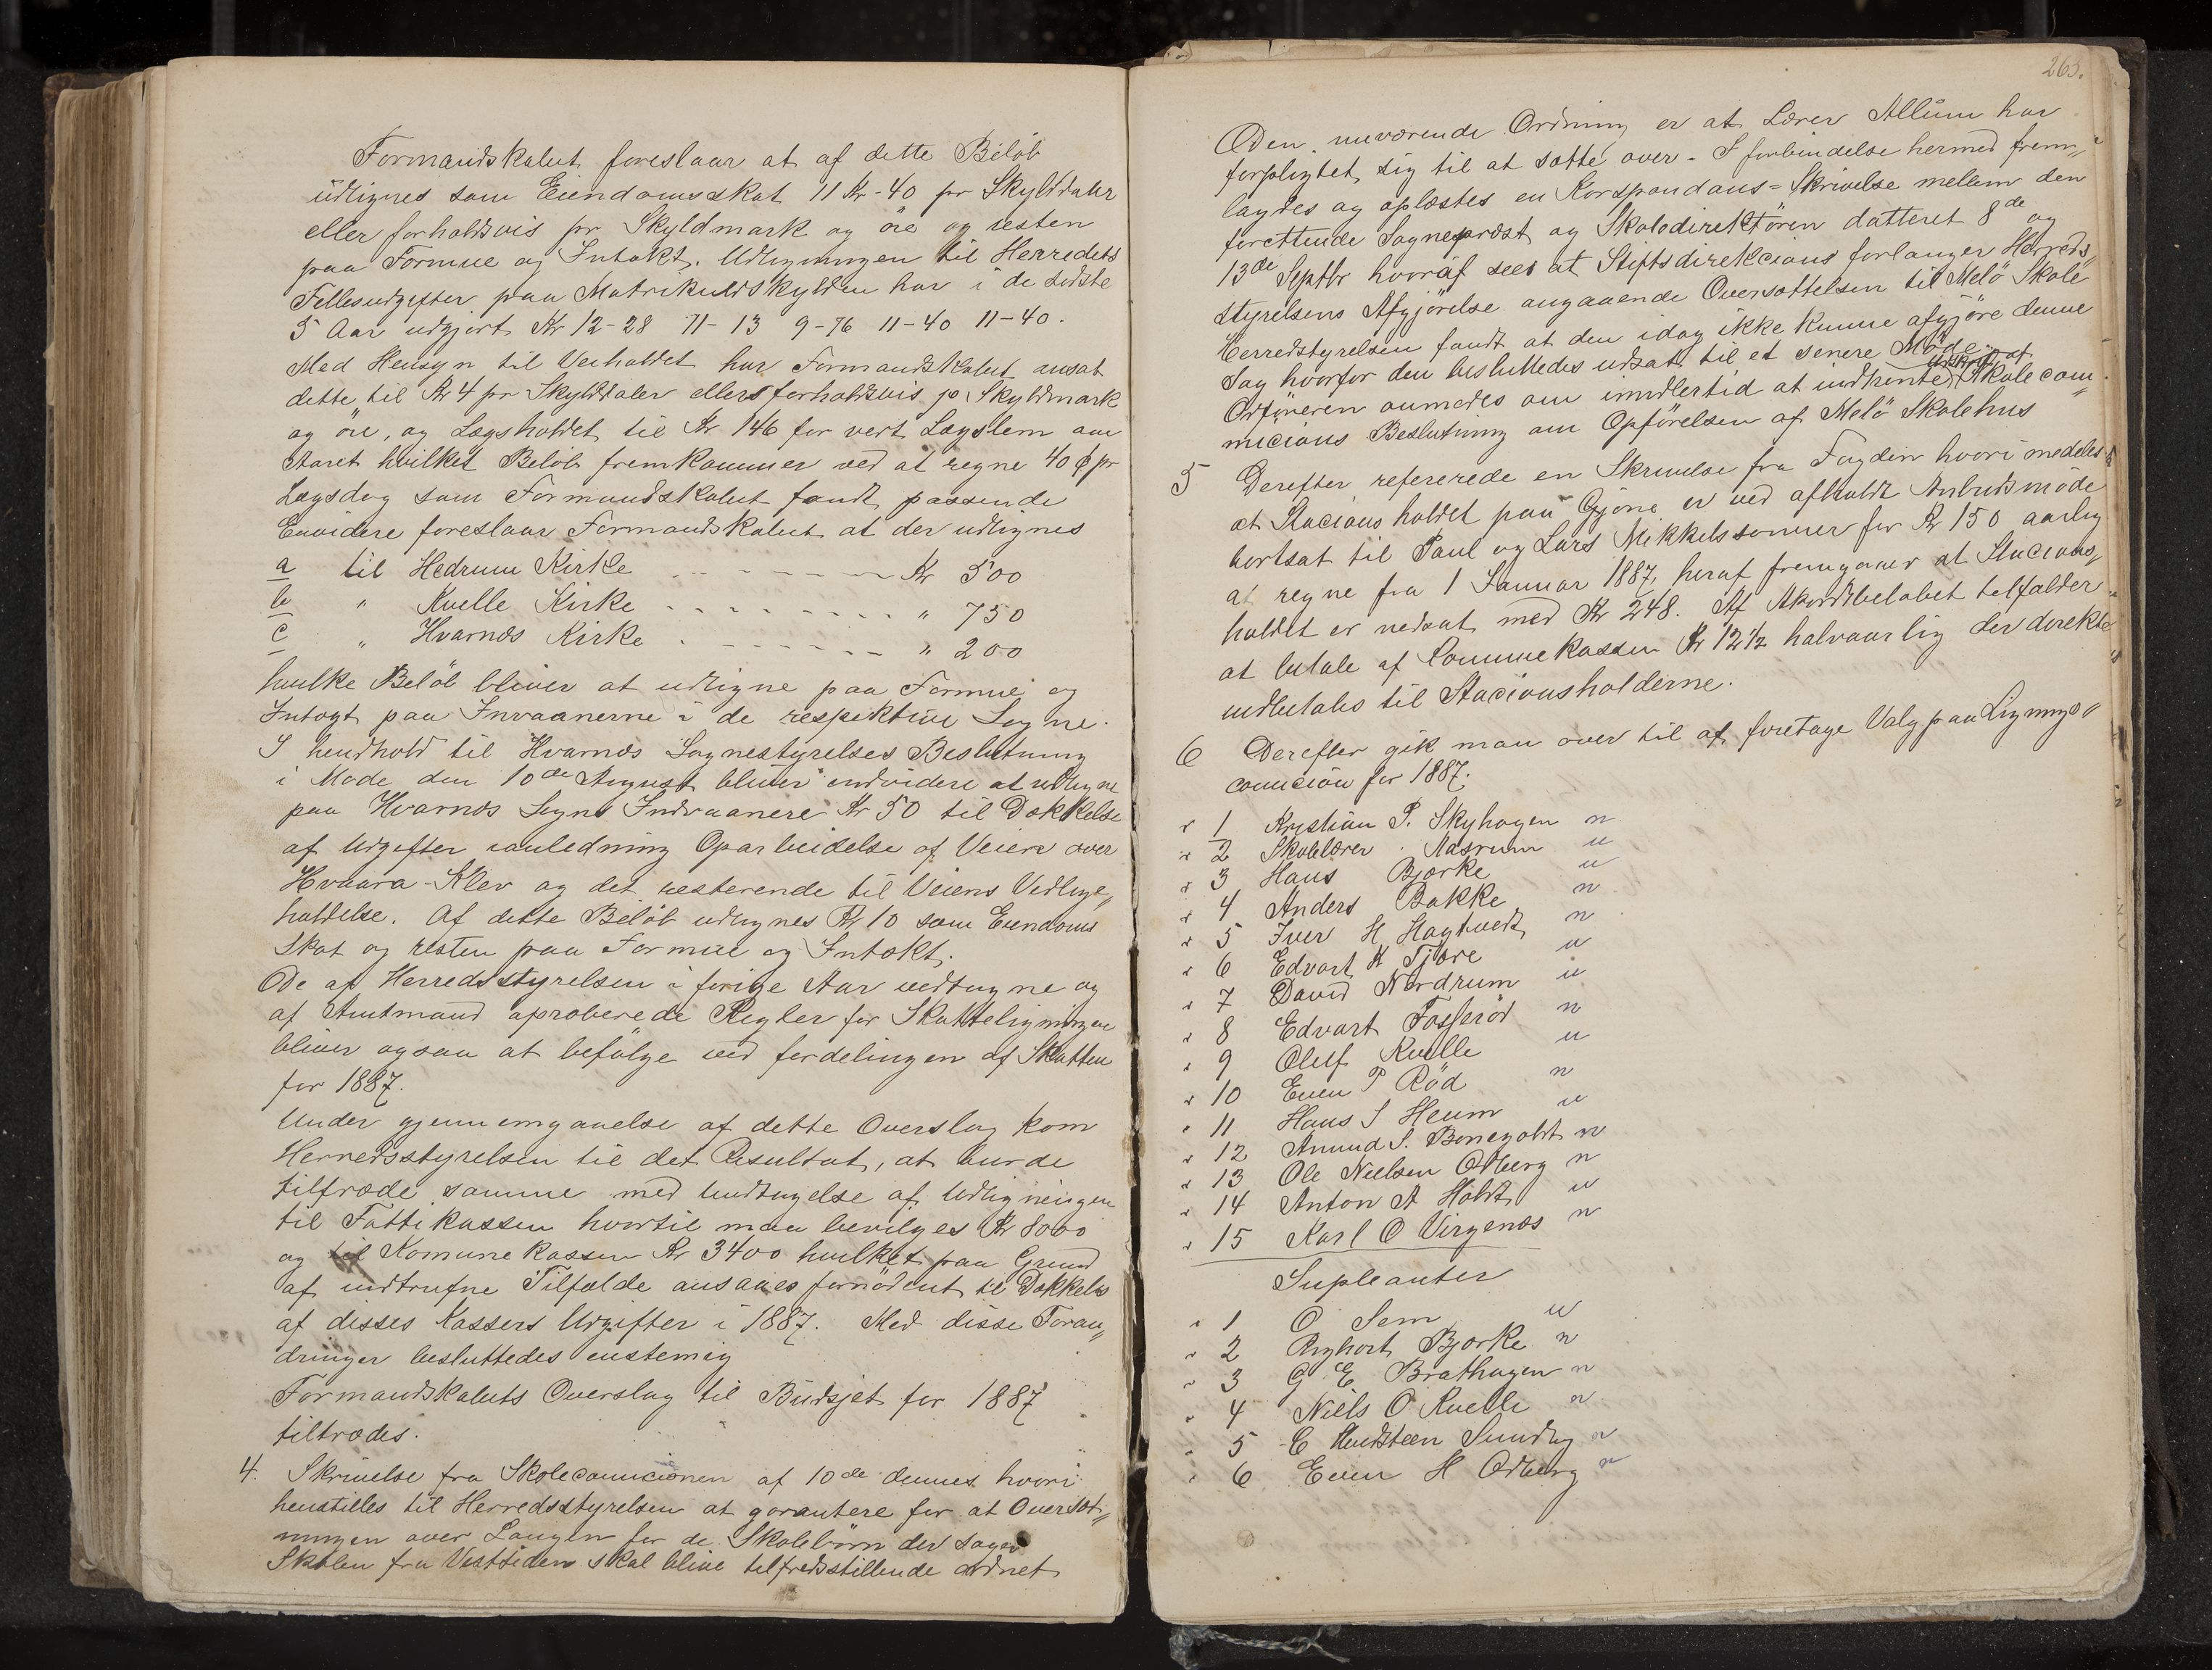 Formandskabet foreslaar at af dette Beløb
üdlignes som Eiendomsskat 11 Kr-40 pr Skylddaler
eller forholdsvis pr Skyldmark og øre og resten
paa Formue og Intækt. Udligningen til Herredets
Fellesudgifter paa Matrikulskylden har i de sidste
5 Aar udgjort Kr 12-28 11-13 9-76 11-40 11-40.
Med Hensyn til Veiholdet har Formandskabet ansat
dette til Kr 4 pr Skylddaler ellers forholdsvis pr Skyldmark
og øre, og Lægsholdet til Kr 146 for vert Lægslem om
Aaret hvilket Beløb fremkommer ved at regne 40 ø pr
Lægsdag som Formandskabet fandt passende
Envidere foreslaar Formandskabet at der udlignes
a til Hedrum Kirke Kr 500
b " Kvelle Kirke " 750
c " Hvarnes Kirke " 200
hvilke Beløb bliver at udligne paa Formue og
Intægt paa Invaanerne i de respiktive Sogne.
I hendhold til Hvarnes Sognestyrelses Beslutning
i Møde den 10de August bliver endvidere at udligne
paa Hvarnes Sogns Indvaanere Kr 50 til Dækkelse
af Udgifter ianledning Oparbeidelse af Veiene over
Hvaara-Klev og det resterende til Veiens Vedlige„
holdelse. Af dette Beløb udlignes Kr 10 som Eiendoms
Skat og resten paa Formue og Intækt.
De af Herredsstyrelsen i forige Aar vedtagne og
af Amtmand aproberede Regler for Skatteligningen
bliver ogsaa at befølge ved fordelingen af Skatten
for 1887.
Under gjennemgaaelse af dette Overslag kom
Herredsstyrelsen til det Resultat, at burde
tiltræde samme med Undtagelse af Udligningen
til Fattikassen hvortil maa bevilges Kr 8000
og til Komunekassen Kr 3400 hvilket paa Grund
af indtrufne Tilfælde ansaaes fornødent til Dækkelse
af disses Kassers Udgifter i 1887. Med disse Foran„
dringer besluttedes enstemig
Formandskabets Overslag til Budsjet for 1887
tiltrædes.
4. Skrivelse fra Skolecomicionen af 10de dennes hvori
henstilles til Herredsstyrelsen at garantere for at Oversæt„
ningen over Laugen for de Skolebørn der søger
Skolen fra Vestsiden skal blive tilfredsstillende ordnet
263.
Den nuværende Ordning er at Lærer Allum har
forpligtet sig til at sætte over. I forbindelse hermed frem„
lagdes og oplæstes en Korspondans=Skrivelse mellem den
forettende Sogneprest og Skoledirektøren datteret 8de og
13de Septbr hvoraf sees at Stiftsdirekcions forlanger Herreds„
styrelsens Afgjørelse angaaende Oversættelsen til Melø Skole
Herredstyrelsen fandt at den idag ikke kunne afgjøre denne
Sag hvorfor den besluttedes udsat til et senere Møde.
Ordføreren anmodes om imidlertid at indhente Udskrift af Skolecom„
micions Beslutning om Opførelsen af Melø Skolehus
5 Derefter refererede en Skrivelse fra Fogden hvori medeles
at Stacionsholdet paa Gjøne er ved afholdt Anbudsmøde
bortsat til Paul og Lars Mikkelssønner for Kr 150 aarlig
at regne fra 1 Januar 1887, heraf fremgaaer at Stacions„
holdet er nedsat med Kr 248. Af Akordbeløbet tilfalder
at betale af Commmekassen Kr 12½ halvaarlig der direkte
indbetales til Stacionsholderne.
6 Derefter gik man over til at foretage Valg paa Lignings„
comicion for 1887.
1 Kristian P. Skyhagen n
2 Skolelærer Aasrum u
3 Hans Bjørke u
4 Anders Bakke n
5 Iver H Hagtvedt n
6 Edvart K Tjøre u
7 David Nordrum u
8 Edvart Fosserød n
9 Oluf Kvelle u
10 Even P Rød n
11 Hans J Heum u
12 Amund S. Bonegolt n
13 Ole Nielsen Odberg n
14 Anton A Holdt u
15 Karl O Virgenæs n
Supleanter
1 O Sem u
2 Ryhort Bjørke n
3 G E Brathagen n
4 Niels O Kvelle n
5 C Hundsteen Sundby n
6 Even H Odberg n